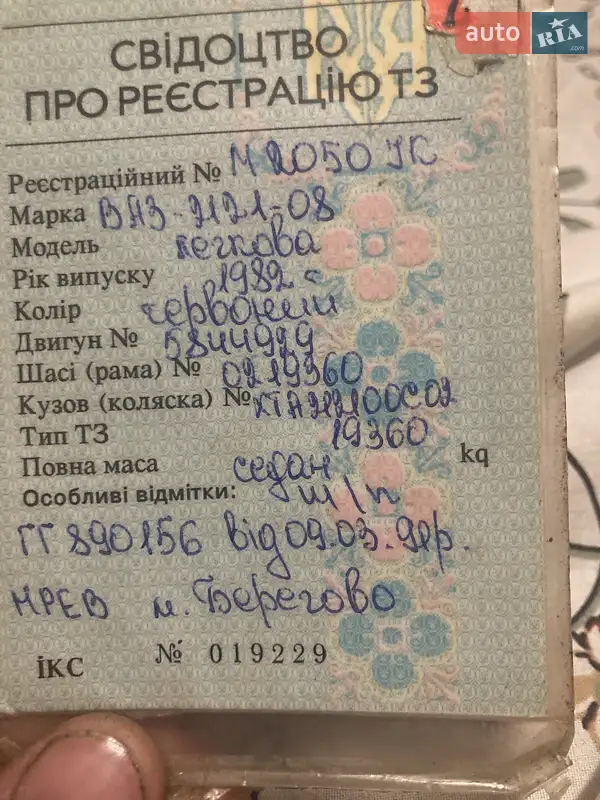 auto RIA .com
СВІДОЦТВО
ПРО РЕЄСТРАЦІЮ ТЗ
Реєстраційний № М2050ІК
Марка ВАЗ-2121-08
Модель легкова
Рік випуску 1982
Колір червоний
Двигун № 5844929
Шасі (рама) № 0219360
Кузов (коляска) № ХТА212100С02
Тип ТЗ 19360
Повна маса седан kq
Особливі відмітки: ш/п
ГГ 890156 від 09.03.
МРЕВ м. Берегово
ІКС № 019229